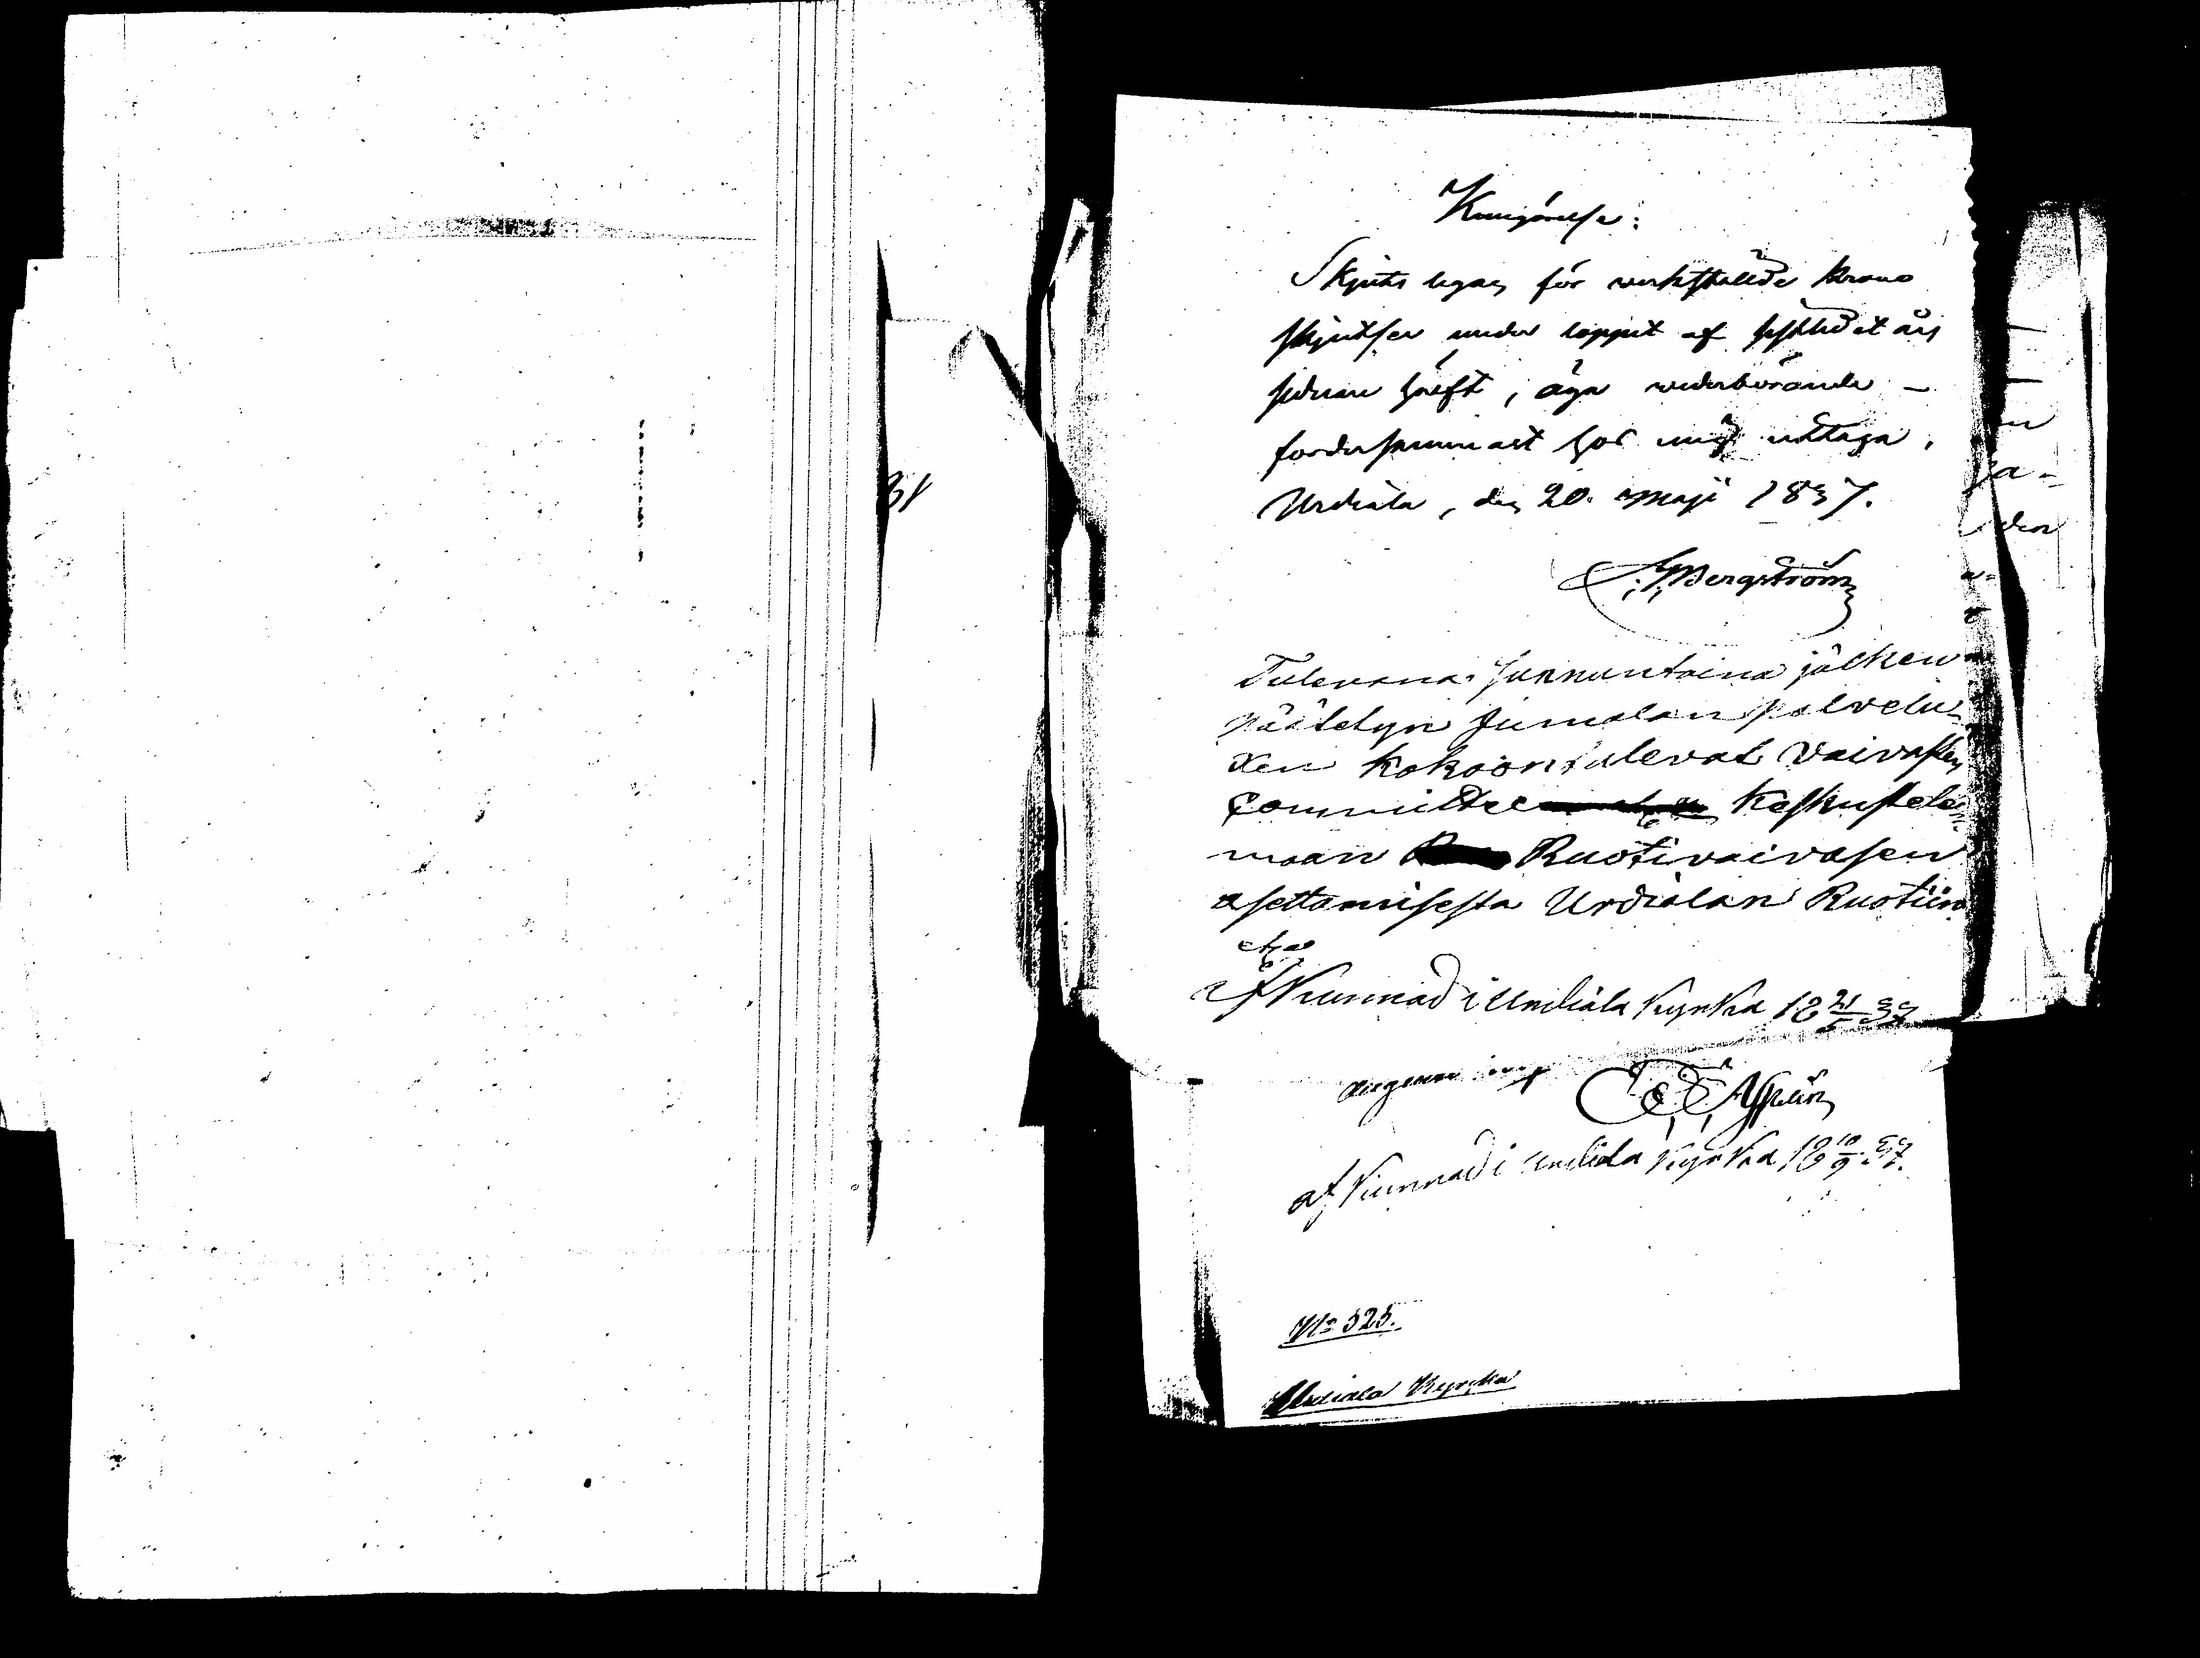 Kungörelse:
Skjuts legan för verkstællde Krono
skjutser under loppet af sistledet års
sednare hælft, äga vederbörande –
fordersammast hos mig uttaga,
Urdiala, den 20. Maji 1837.
Bergström
Tulevana Sunnuntaina jälken
päätetyn Jumalan palvelu-
xen kokoontulevat Vaivasten
Committee Keskustele-
maan Ruotivaivasen
asettamisesta Urdialan Ruotiin
af Kunnad i Urdiala Kyrka 18 21/5 37
af Kunnad i Urdiala Kyrka 18 10/9 37.
No 525.
Urdiala Kyrcka